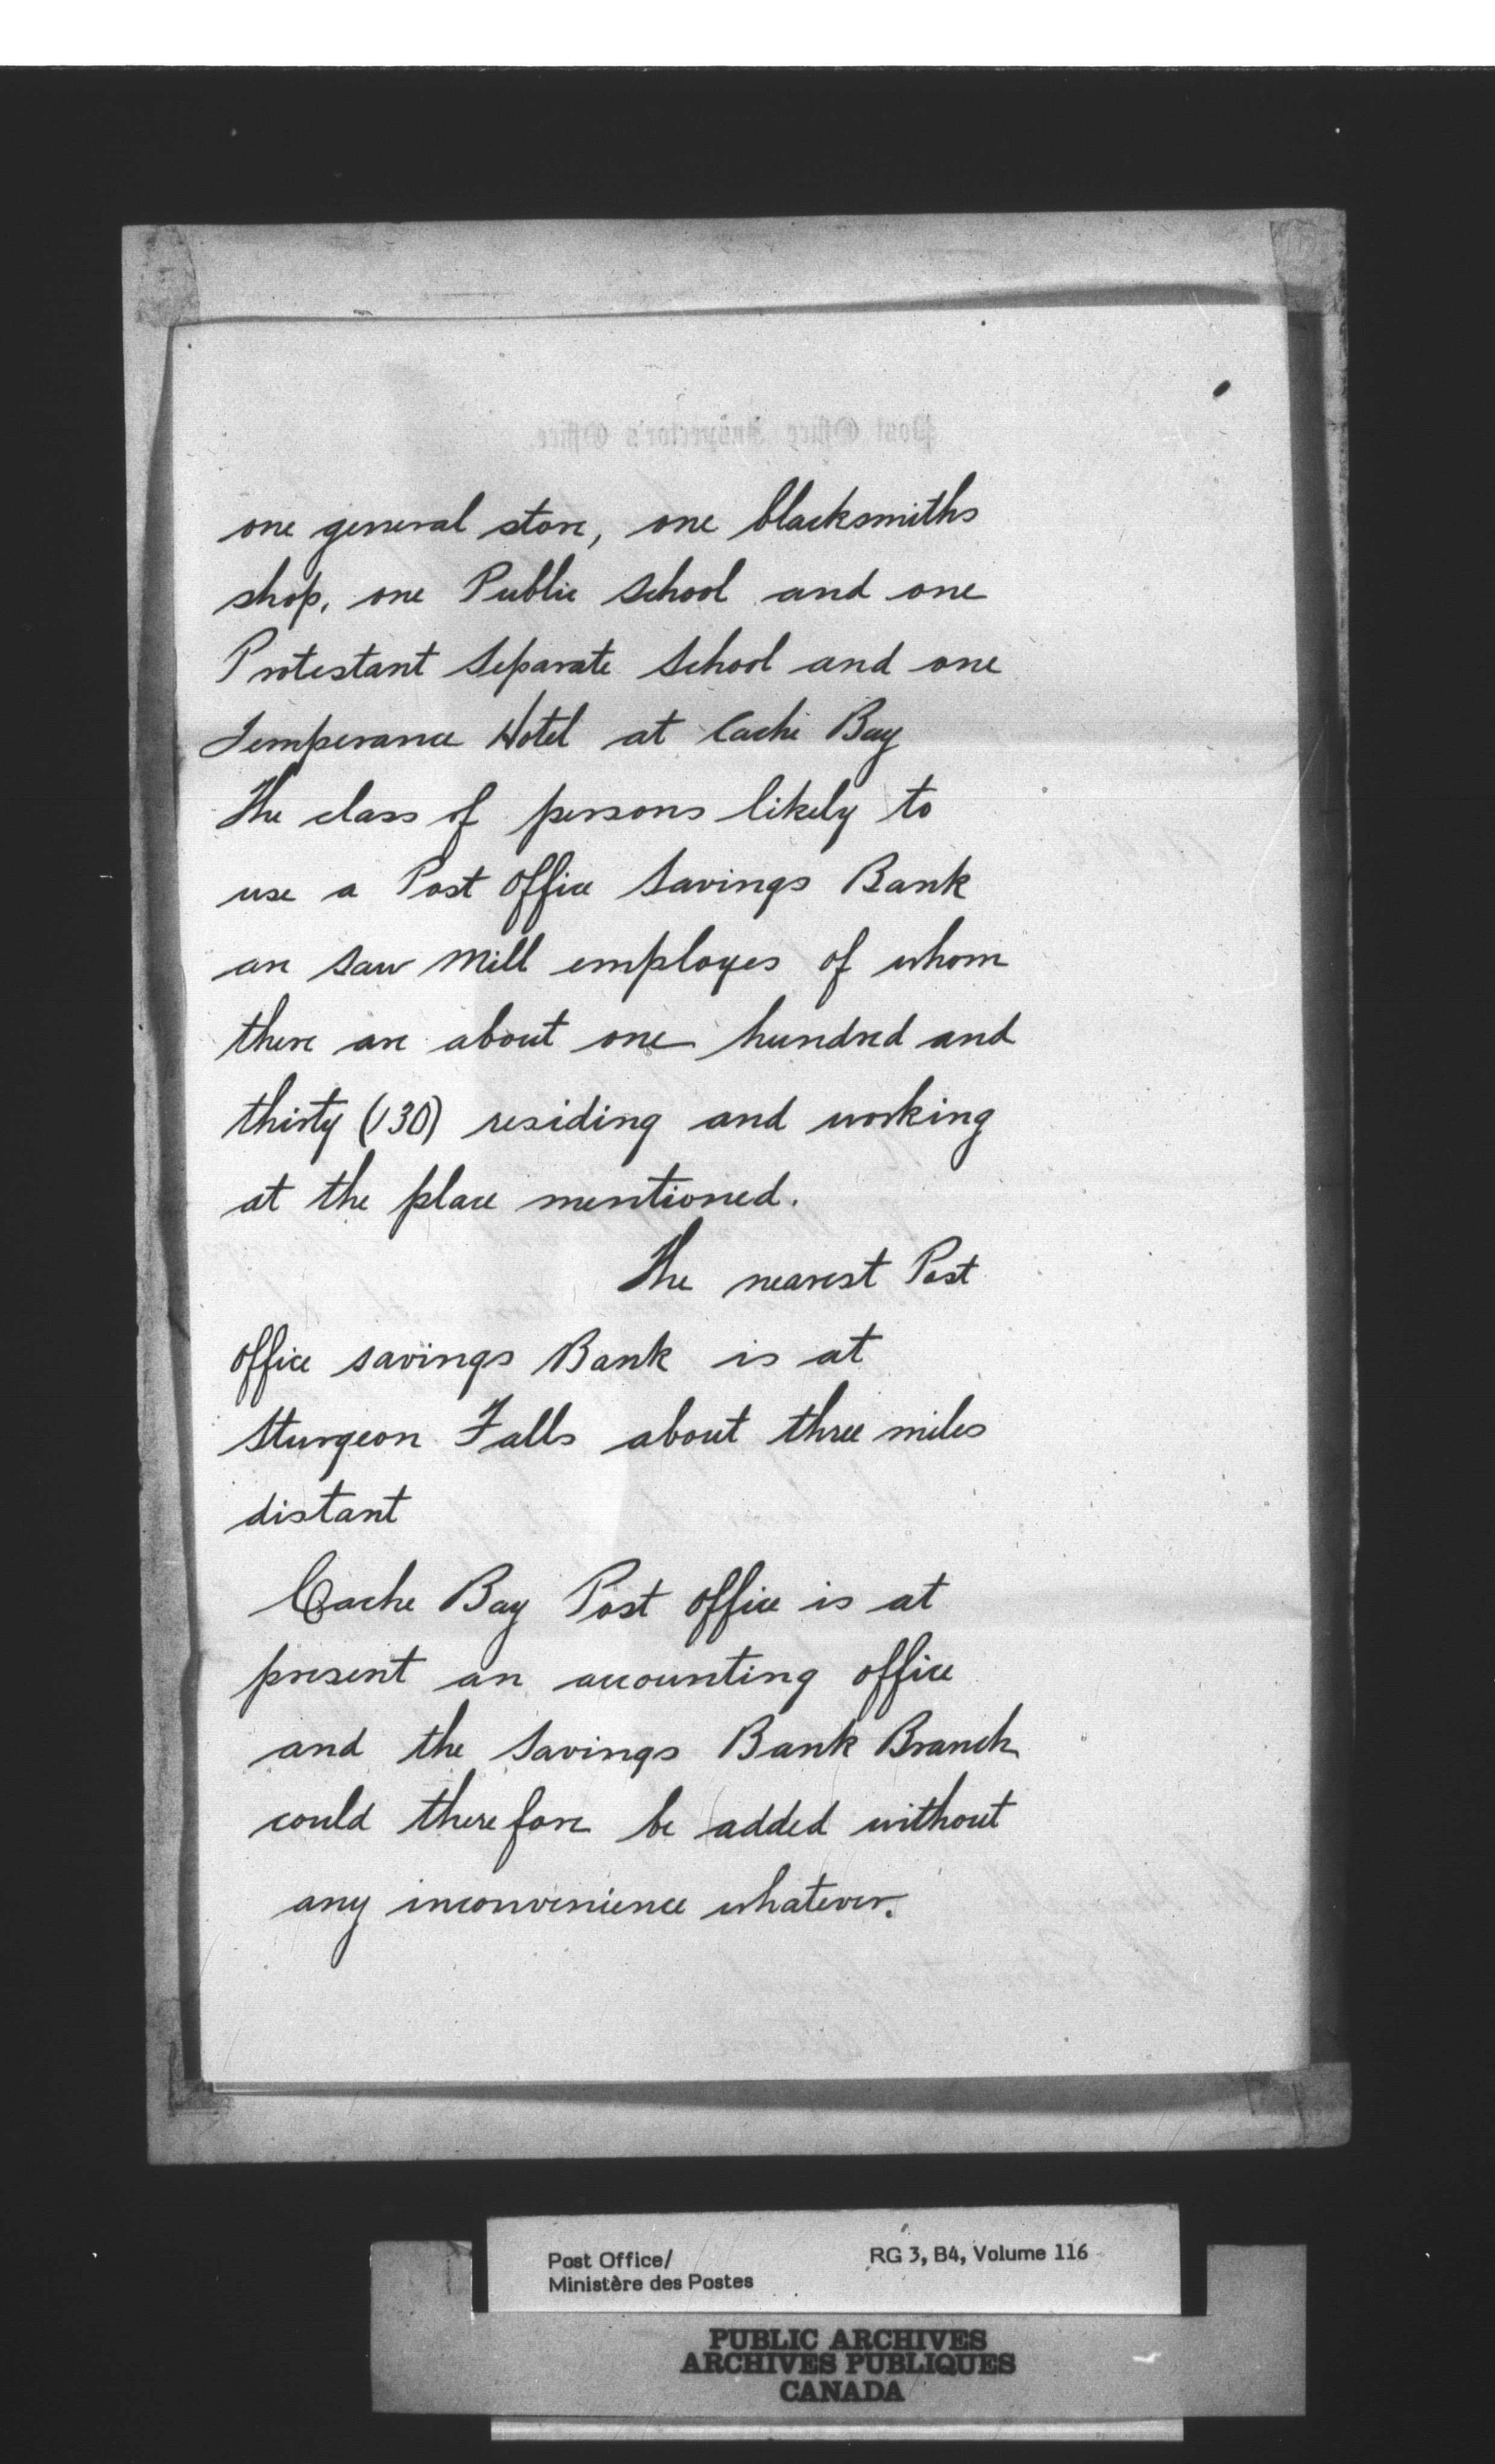 Post Office Inspector's Office.
one general store, one blacksmiths
shop, one Public School and one
Protestant Separate School and one
Temperance Hotel at Cache Bay
The class of persons likely to
use a Post Office Savings Bank
are Saw Mill employes of whom
there are about one hundred and
thirty (130) residing and working
at the place mentioned.
The nearest Post
Office savings Bank is at
Sturgeon Falls about three miles
distant
Cache Bay Post Office is at
present an accounting office
and the Savings Bank Branch
could therefore be added without
any inconvenience whatever.
Post Office/
Ministère des Postes
RG 3, B4, Volume 116
PUBLIC ARCHIVES
ARCHIVES PUBLIQUES
CANADA